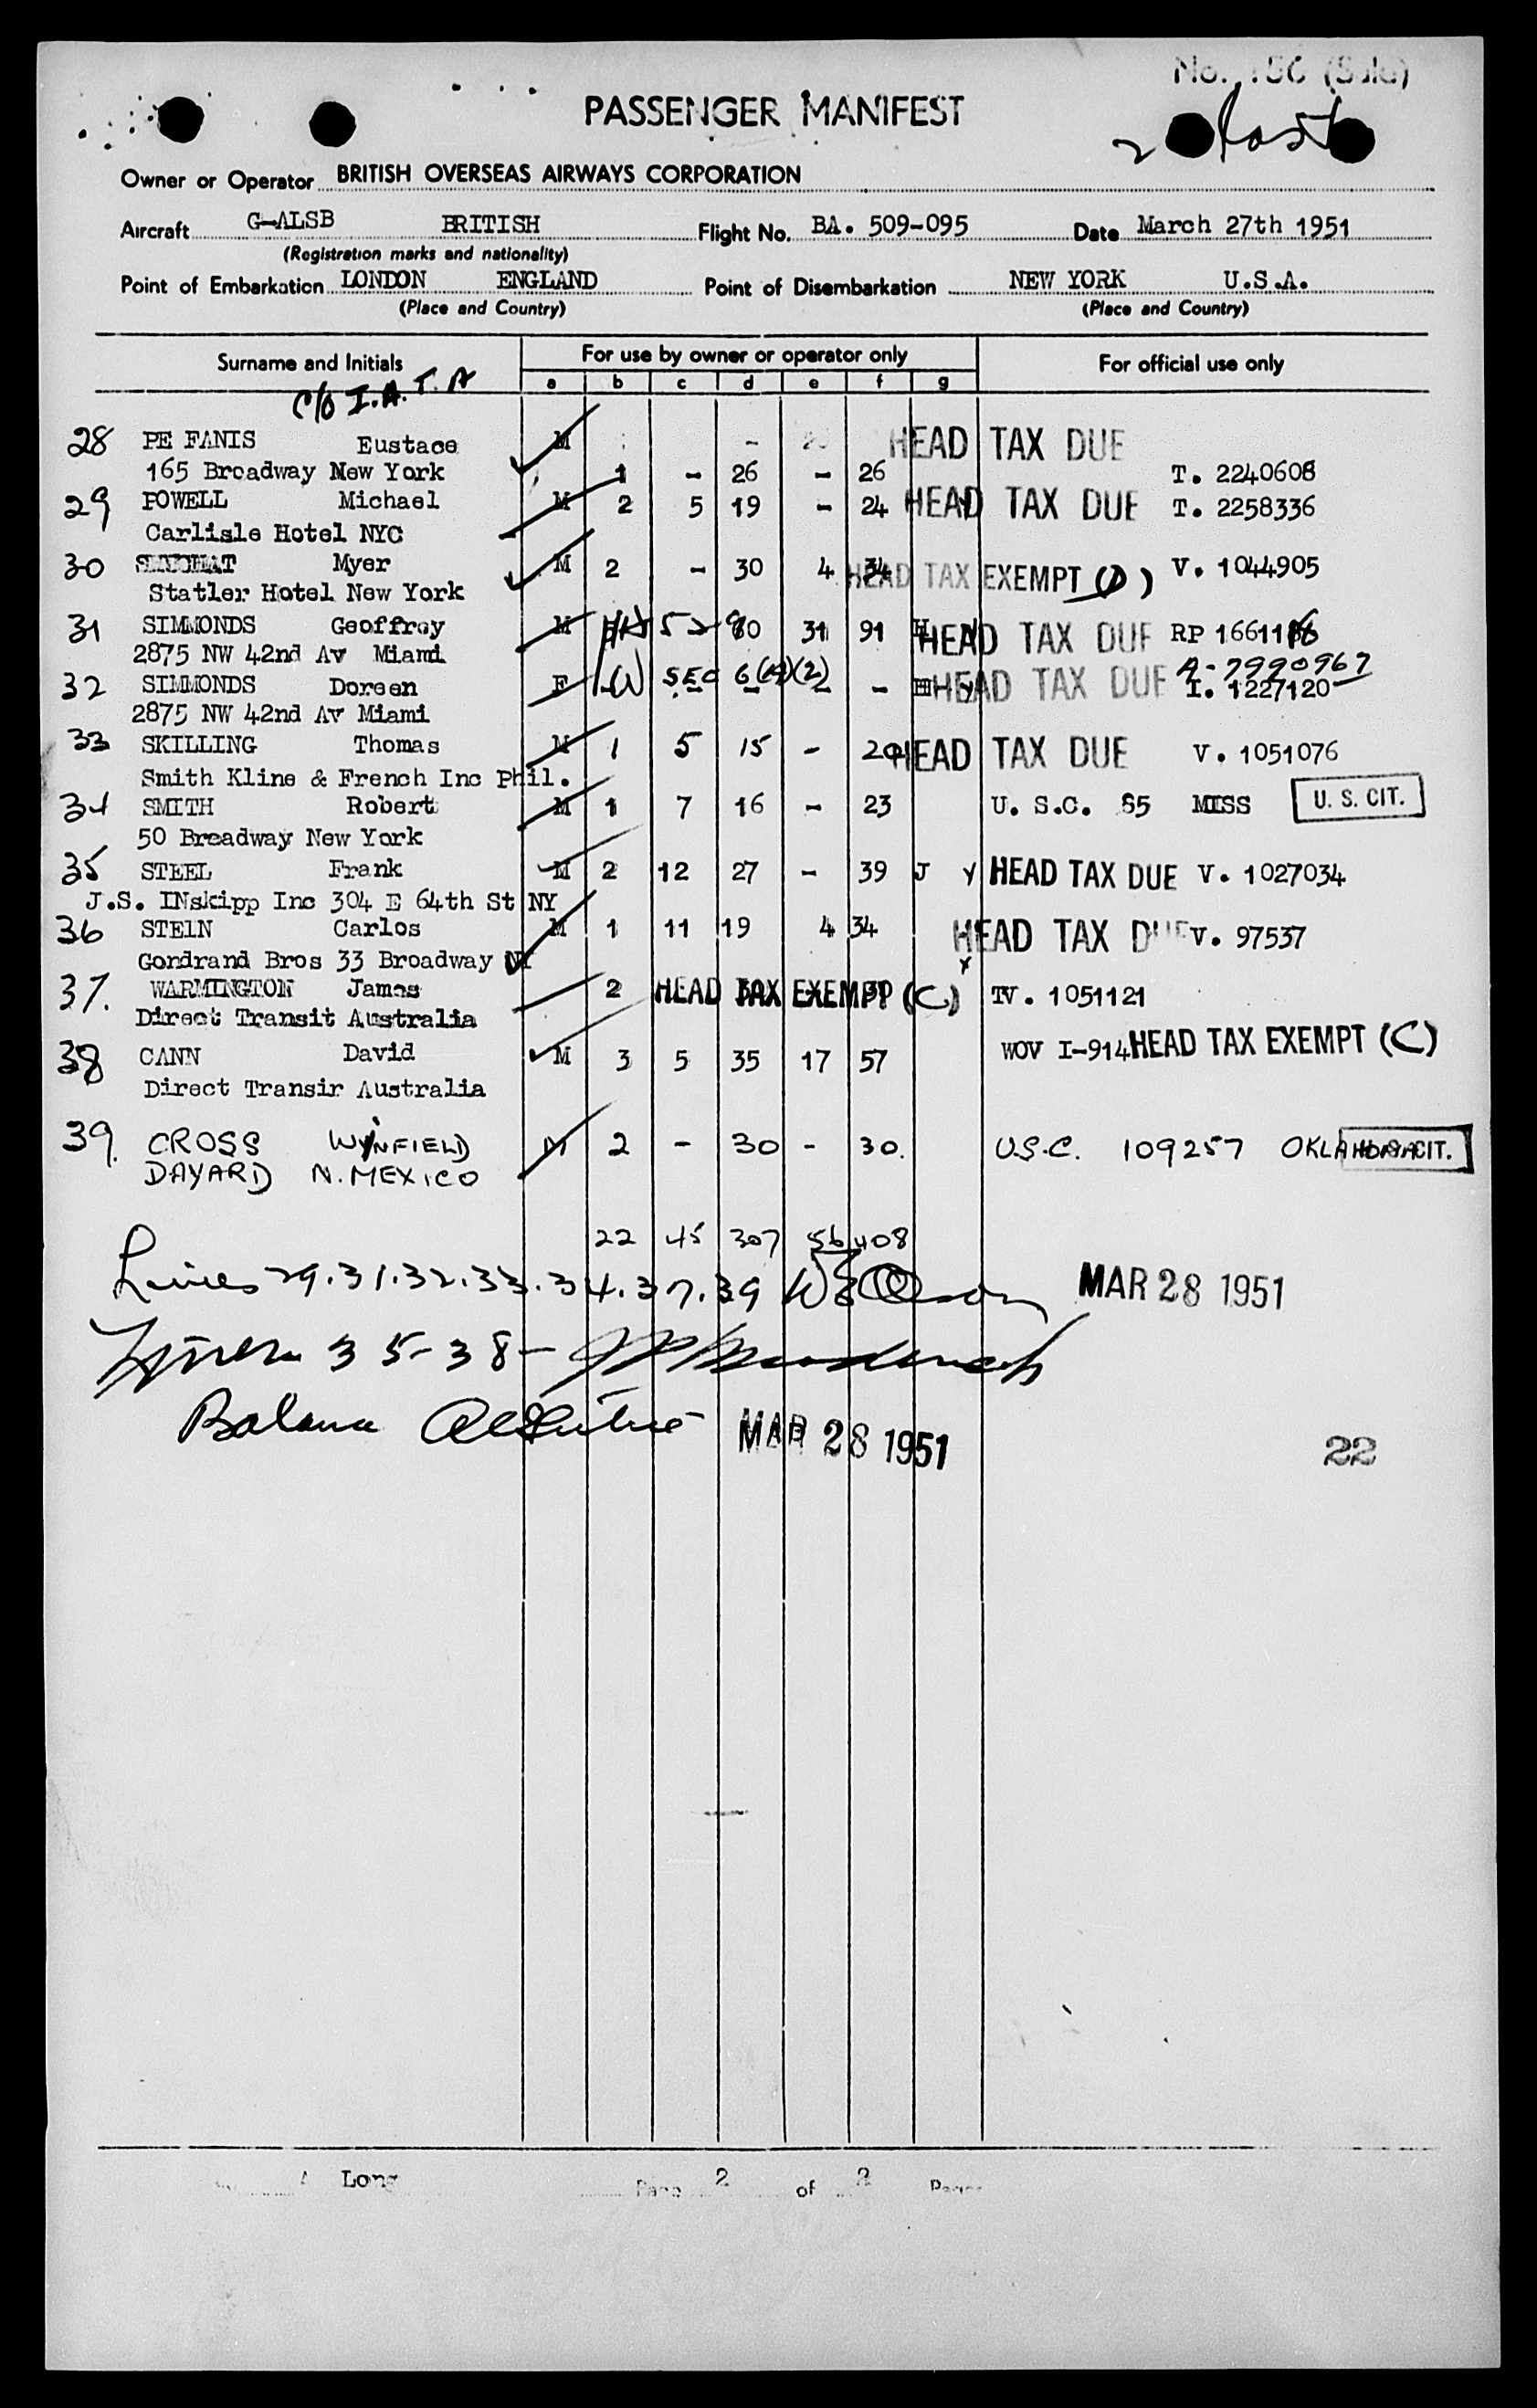 PASSENGER MANIFEST
Owner or Operator BRITISH OVERSEAS AIRWAYS CORPORATION
Aircraft G-ALSB BRITISH Flight No. BA. 509-095 Date March 27th 1951
(Registration marks and nationality)
Point of Embarkation LONDON ENGLAND Point of Disembarkation NEW YORK U.S.A.
(Place and Country) (Place and Country)
Surname and Initials For use by owner or operator only For official use only
a b c d e f g
c/o I.A.T.A
28 PE FANIS Eustace M - HEAD TAX DUE
165 Broadway New York 1 - 26 - 26 T. 2240608
29 POWELL Michael M 2 5 19 - 24 HEAD TAX DUE T. 2258336
Carlisle Hotel NYC
30 Myer M 2 - 30 4 34 HEAD TAX EXEMPT (D) V. 1044905
Statler Hotel New York
31 SIMMONDS Geoffrey M 31 91 H HEAD TAX DUE RP
2875 NW 42nd Av Miami
A-7990967
32 SIMMONDS Doreen F (W) SEC 6(A)(2) - HEAD TAX DUE I. 1227120
2875 NW 42nd Av Miami
33 SKILLING Thomas M 1 5 15 - 20 HEAD TAX DUE V. 1051076
Smith Kline & French Inc Phil.
34 SMITH Robert M 1 7 16 - 23 U. S.C. 85 MISS U. S. CIT.
50 Broadway New York
35 STEEL Frank M 2 12 27 - 39 J Y HEAD TAX DUE V. 1027034
J.S. INskipp Inc 304 E 64th St NY
36 STEIN Carlos M 1 11 19 4 34 HEAD TAX DUE V. 97537
Gondrand Bros 33 Broadway NY
37. WARMINGTON James 2 HEAD TAX EXEMPT (C) TV. 1051121
Direct Transit Australia
38 CANN David M 3 5 35 17 57 WOV I-914 HEAD TAX EXEMPT (C)
Direct Transir Australia
39. CROSS WYNFIELD M 2 - 30 - 30. U.S.C. 109257 OKLAHOMA U.S. CIT.
DAYARD N. MEXICO
22 45 307 56 408
Lines 29.31.32.33.34.37.39 MAR 28 1951
Lines 35-38-
Balance MAR 28 1951
22
Long Page 2 of 2 Pages